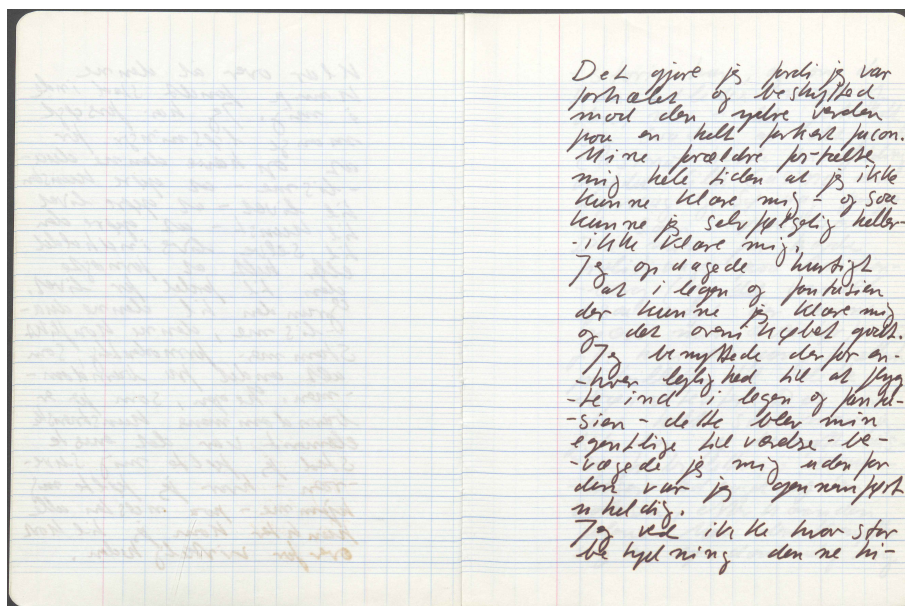 Det gjorde jeg fordi jeg var
forkælet og beskyttet
mod den ydre verden
paa en helt forkert facon.
Mine forældre fortalte
mig hele tiden at jeg ikke
kunne klare mig - og saa
kunne jeg selvfølgelig heller-
-ikke klare mig.
Jeg opdagede hurtigt
at i legen og fantasien
der kunne jeg klare mig
og det ovenikøbet godt.
Jeg benyttede derfor en-
-hver lejlighed til at flyg-
-te ind i legen og fanta-
-sien - dette blev min
egentlige tilværelse - be-
-vægede jeg mig uden for
den var jeg
uheldig.
Jeg ved ikke hvor stor
betydning denne hi-